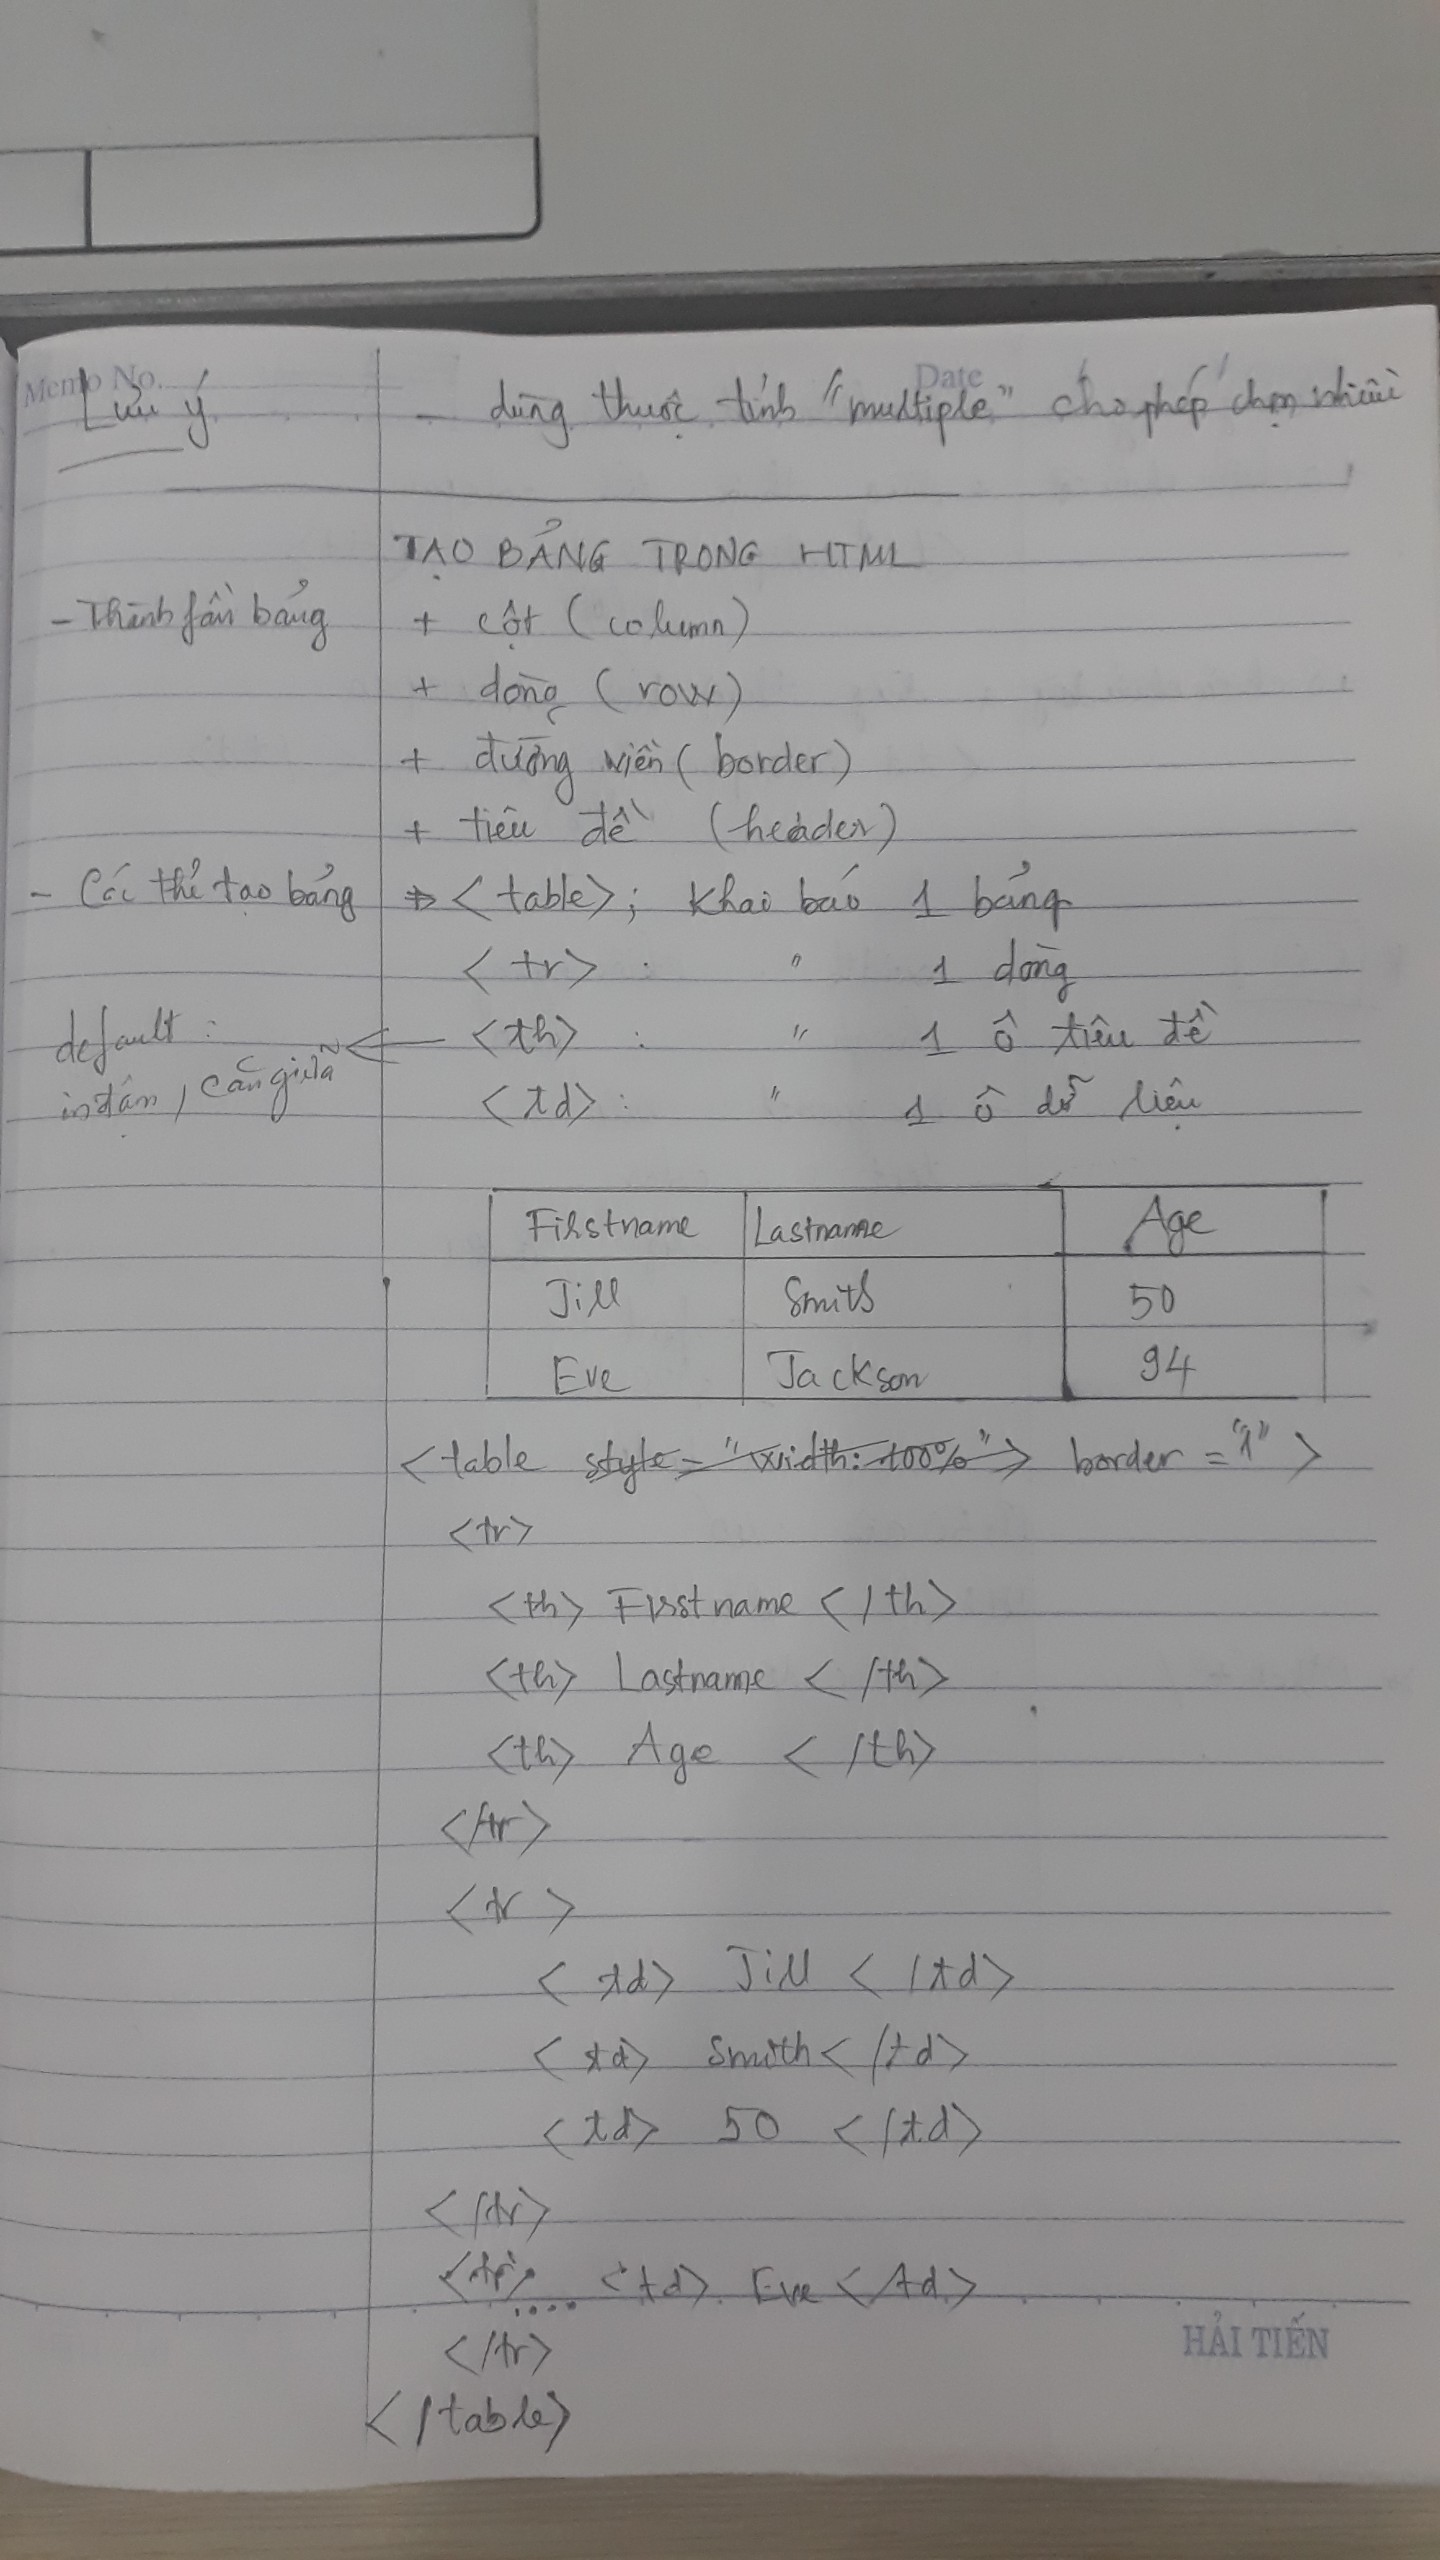 Memo No.
Date
Lưu ý - dùng thuộc tính "multiple" cho phép chọn nhiều
TẠO BẢNG TRONG HTML
- Thành fần bảng + cột (column)
+ dòng (row)
+ đường viền (border)
+ tiêu đề (header)
- Các thẻ tạo bảng → <table>; khai báo 1 bảng
<tr> : " 1 dòng
default : ← <th> : " 1 ô tiêu đề
in đậm, căn giữa <td> : " 1 ô dữ liệu
Firstname Lastname Age
Jill Smith 50
Eve Jackson 94
<table style="width: 100%"> border = "1" >
<tr>
<th> Firstname </th>
<th> Lastname </th>
<th> Age </th>
</tr>
<tr>
<td> Jill </td>
<td> Smith </td>
<td> 50 </td>
</tr>
<tr> .... <td> Eve </td>
</tr>
</table>
HẢI TIẾN